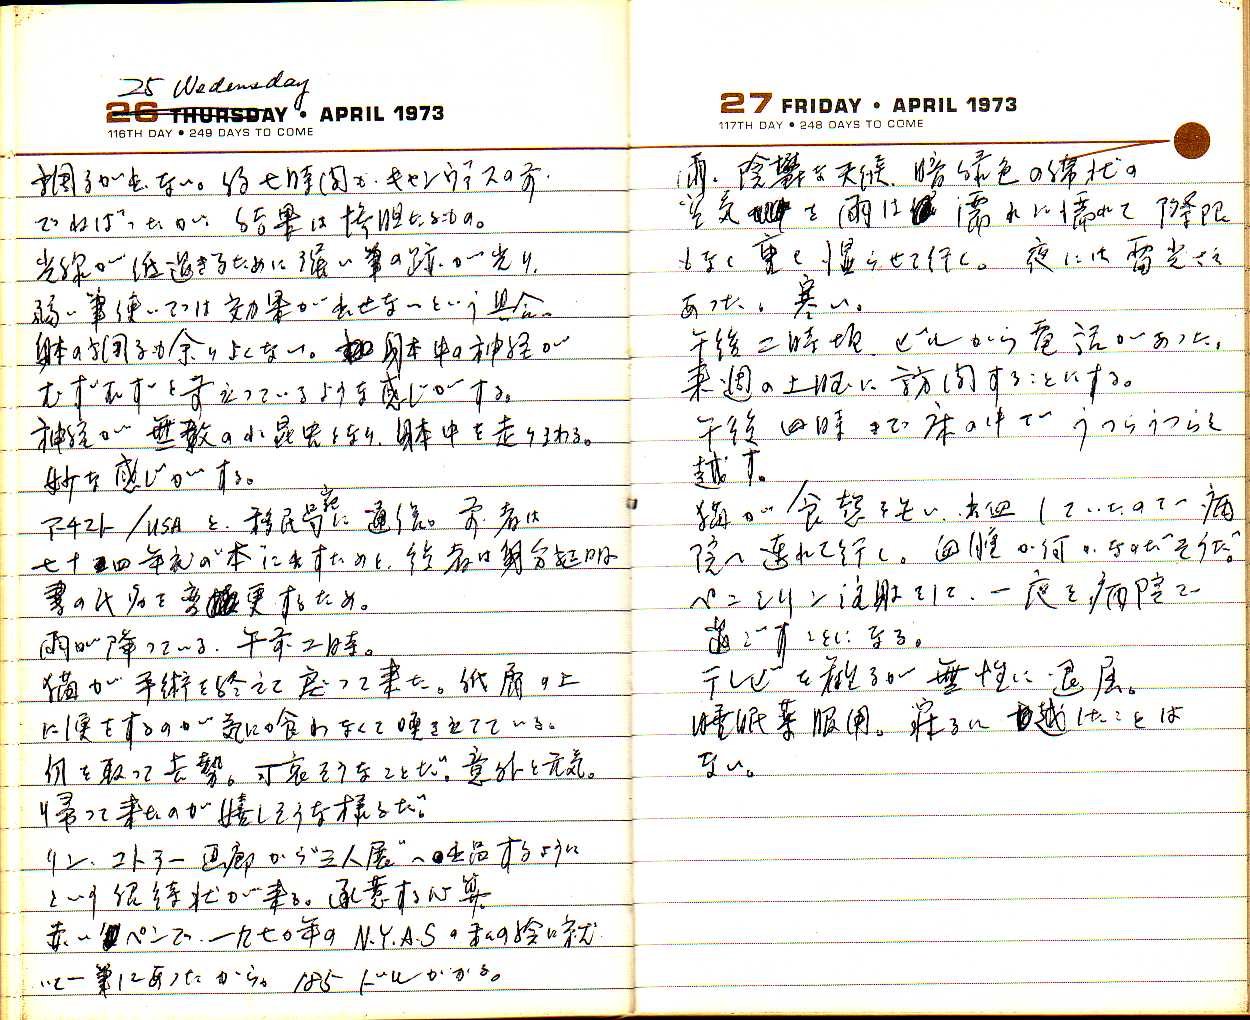 25 Wedensday
26 THURSDAY • APRIL 1973
116TH DAY • 249 DAYS TO COME
調子が出ない。約七時間もキャンヴァスの前
でねばったが、結果は惨胆たるもの。
光線が 過ぎるために強い筆の跡が光り、
弱い筆使いでは効果が出せないという具合。
身体の調子も余りよくない。身体中の神経が
むずむずと っているような感じがする。
神経が無数の小昆虫となり、身体中を走りまわる。
妙な感じがする。
アーチスト/USAと、移民局に通信。前者は
七十四年式の本に出すためと、後者は
書の 変更するため。
雨が降っている。午前二時。
猫が手術を終えて戻って来た。紙屑の上
に便をするのが気に食わなくて喚き立てている。
何を取って去勢。可哀そうなことだ。意外と元気。
帰って来たのが嬉しそうな様子だ。
リン・コトラー画廊から"三人展"へ出品するように
という招待状が来る。承諾する心算。
赤いペンで、一九七〇年のN.Y.A.Sの私の絵に就
いて一筆にあったから。185ドルかかる。
27 FRIDAY • APRIL 1973
117TH DAY • 248 DAYS TO COME
雨。陰鬱な天候、暗緑色の帯状の
空気を雨は濡れに濡れて際限
もなく重く湿らせて行く。夜には雷光さえ
あった。寒い。
午後二時頃、ビルから電話があった。
来週の土曜に訪問することにする。
午後四時まで床の中でうつらうつらと
越す。
猫が食慾を失い、出血していたので病
院へ連れて行く。血腫か何かなのだそうだ。
ペニシリン注射をして、一夜を病院で
過ごすことになる。
テレビを観るが無性に退屈。
睡眠薬服用。寝るに越したことは
ない。